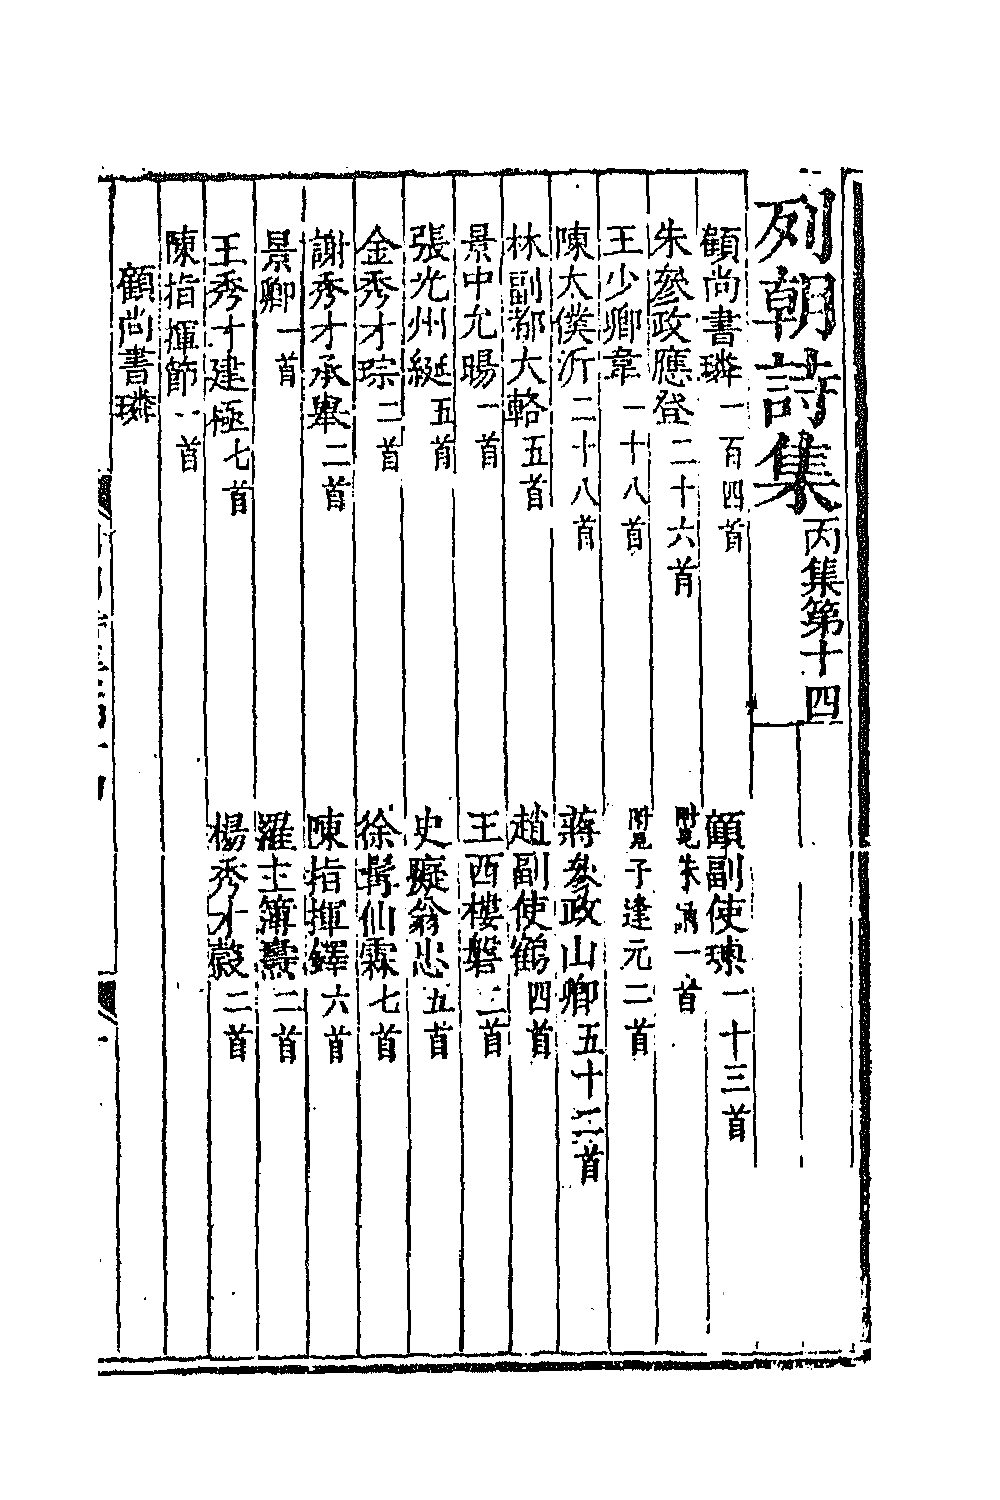 列朝詩集丙集第十四
顧尚書璘一百四首 顧副使瑮一十三首
朱參政應登二十六首 附見朱 一首
王少卿韋一十八首 附見子逢元二首
陳太僕沂二十八首 蔣參政山卿五十二首
林副都大輅五首 趙副使鶴四首
景中允暘一首 王西樓磐二首
張光州綖五首 史癡翁忠五首
金秀才琮二首 徐髯仙霖七首
謝秀才承舉二首 陳指揮鐸六首
景卿一首 羅主簿燾二首
王秀才建極七首 楊秀才穀二首
陳指揮節一首
顧尚書璘